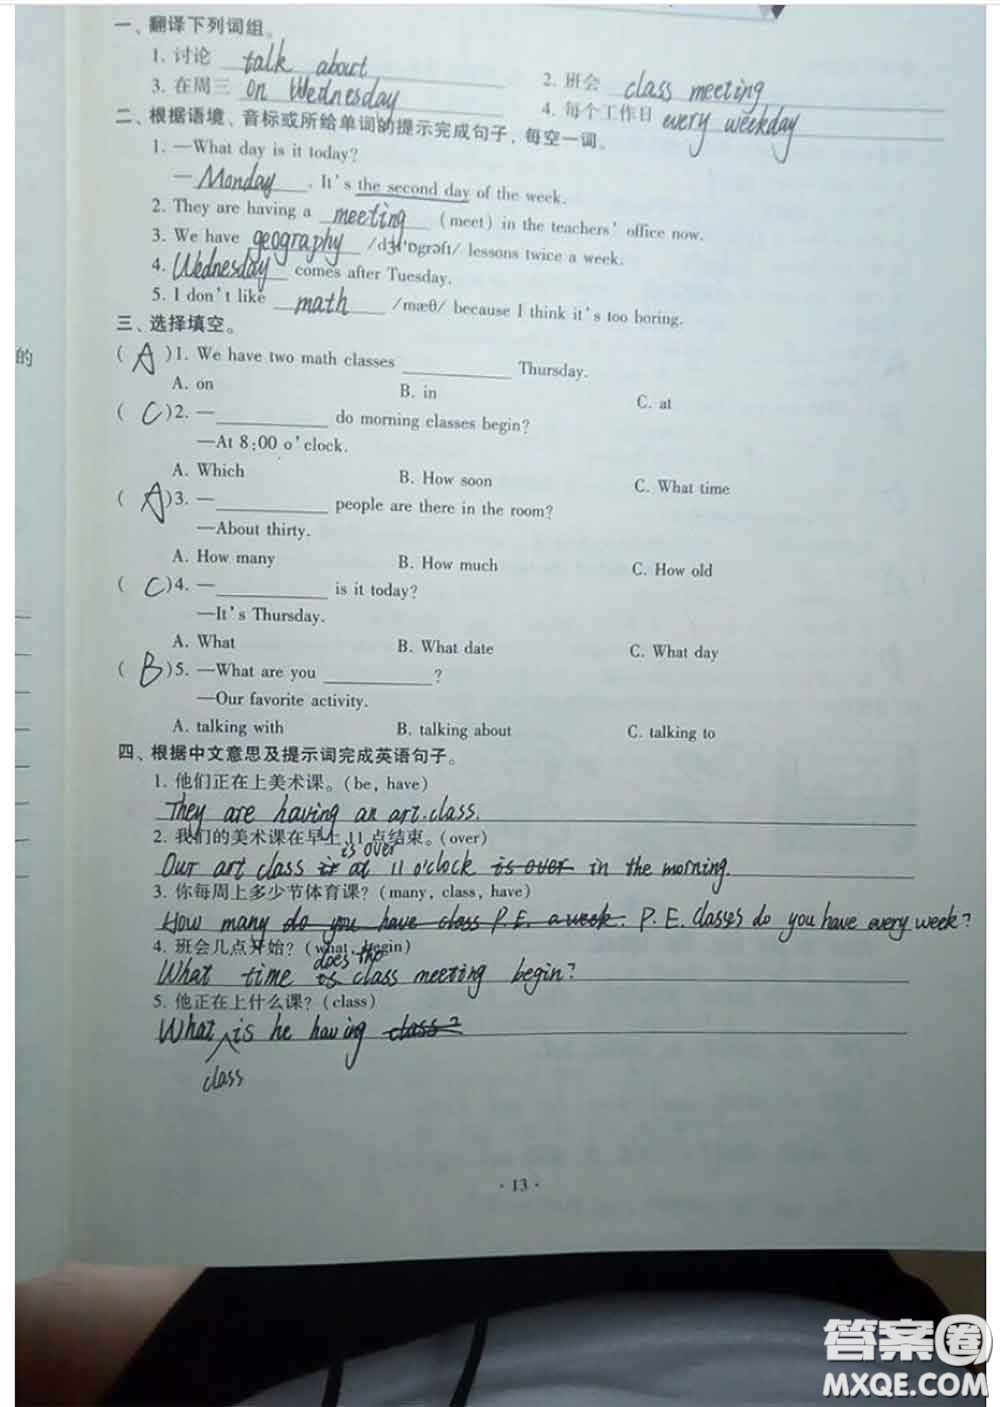 一、翻译下列词组。
1. 讨论 talk about 2. 班会 class meeting
3. 在周三 on Wednesday 4. 每个工作日 every weekday
二、根据语境、音标或所给单词的提示完成句子，每空一词。
1. —What day is it today?
— Monday . It's the second day of the week.
2. They are having a meeting (meet) in the teachers' office now.
3. We have geography /dʒɪ'ɒgrəfɪ/ lessons twice a week.
4. Wednesday comes after Tuesday.
5. I don't like math /mæθ/ because I think it's too boring.
三、选择填空。
的
( A )1. We have two math classes __________ Thursday.
A. on B. in C. at
( C )2. —__________ do morning classes begin?
—At 8:00 o'clock.
A. Which B. How soon C. What time
( A )3. —__________ people are there in the room?
—About thirty.
A. How many B. How much C. How old
( C )4. —__________ is it today?
—It's Thursday.
A. What B. What date C. What day
( B )5. —What are you __________?
—Our favorite activity.
A. talking with B. talking about C. talking to
四、根据中文意思及提示词完成英语句子。
1. 他们正在上美术课。(be, have)
They are having an art class.
2. 我们的美术课在早上 11 点结束。(over)
is over
Our art class is at 11 o'clock is over in the morning.
3. 你每周上多少节体育课? (many, class, have)
How many do you have class P.E. a week. P.E. classes do you have every week?
4. 班会几点开始? (what, begin)
does the
What time is class meeting begin?
5. 他正在上什么课? (class)
What is he having class?
class
· 13 ·
答案圈
MXQE.COM